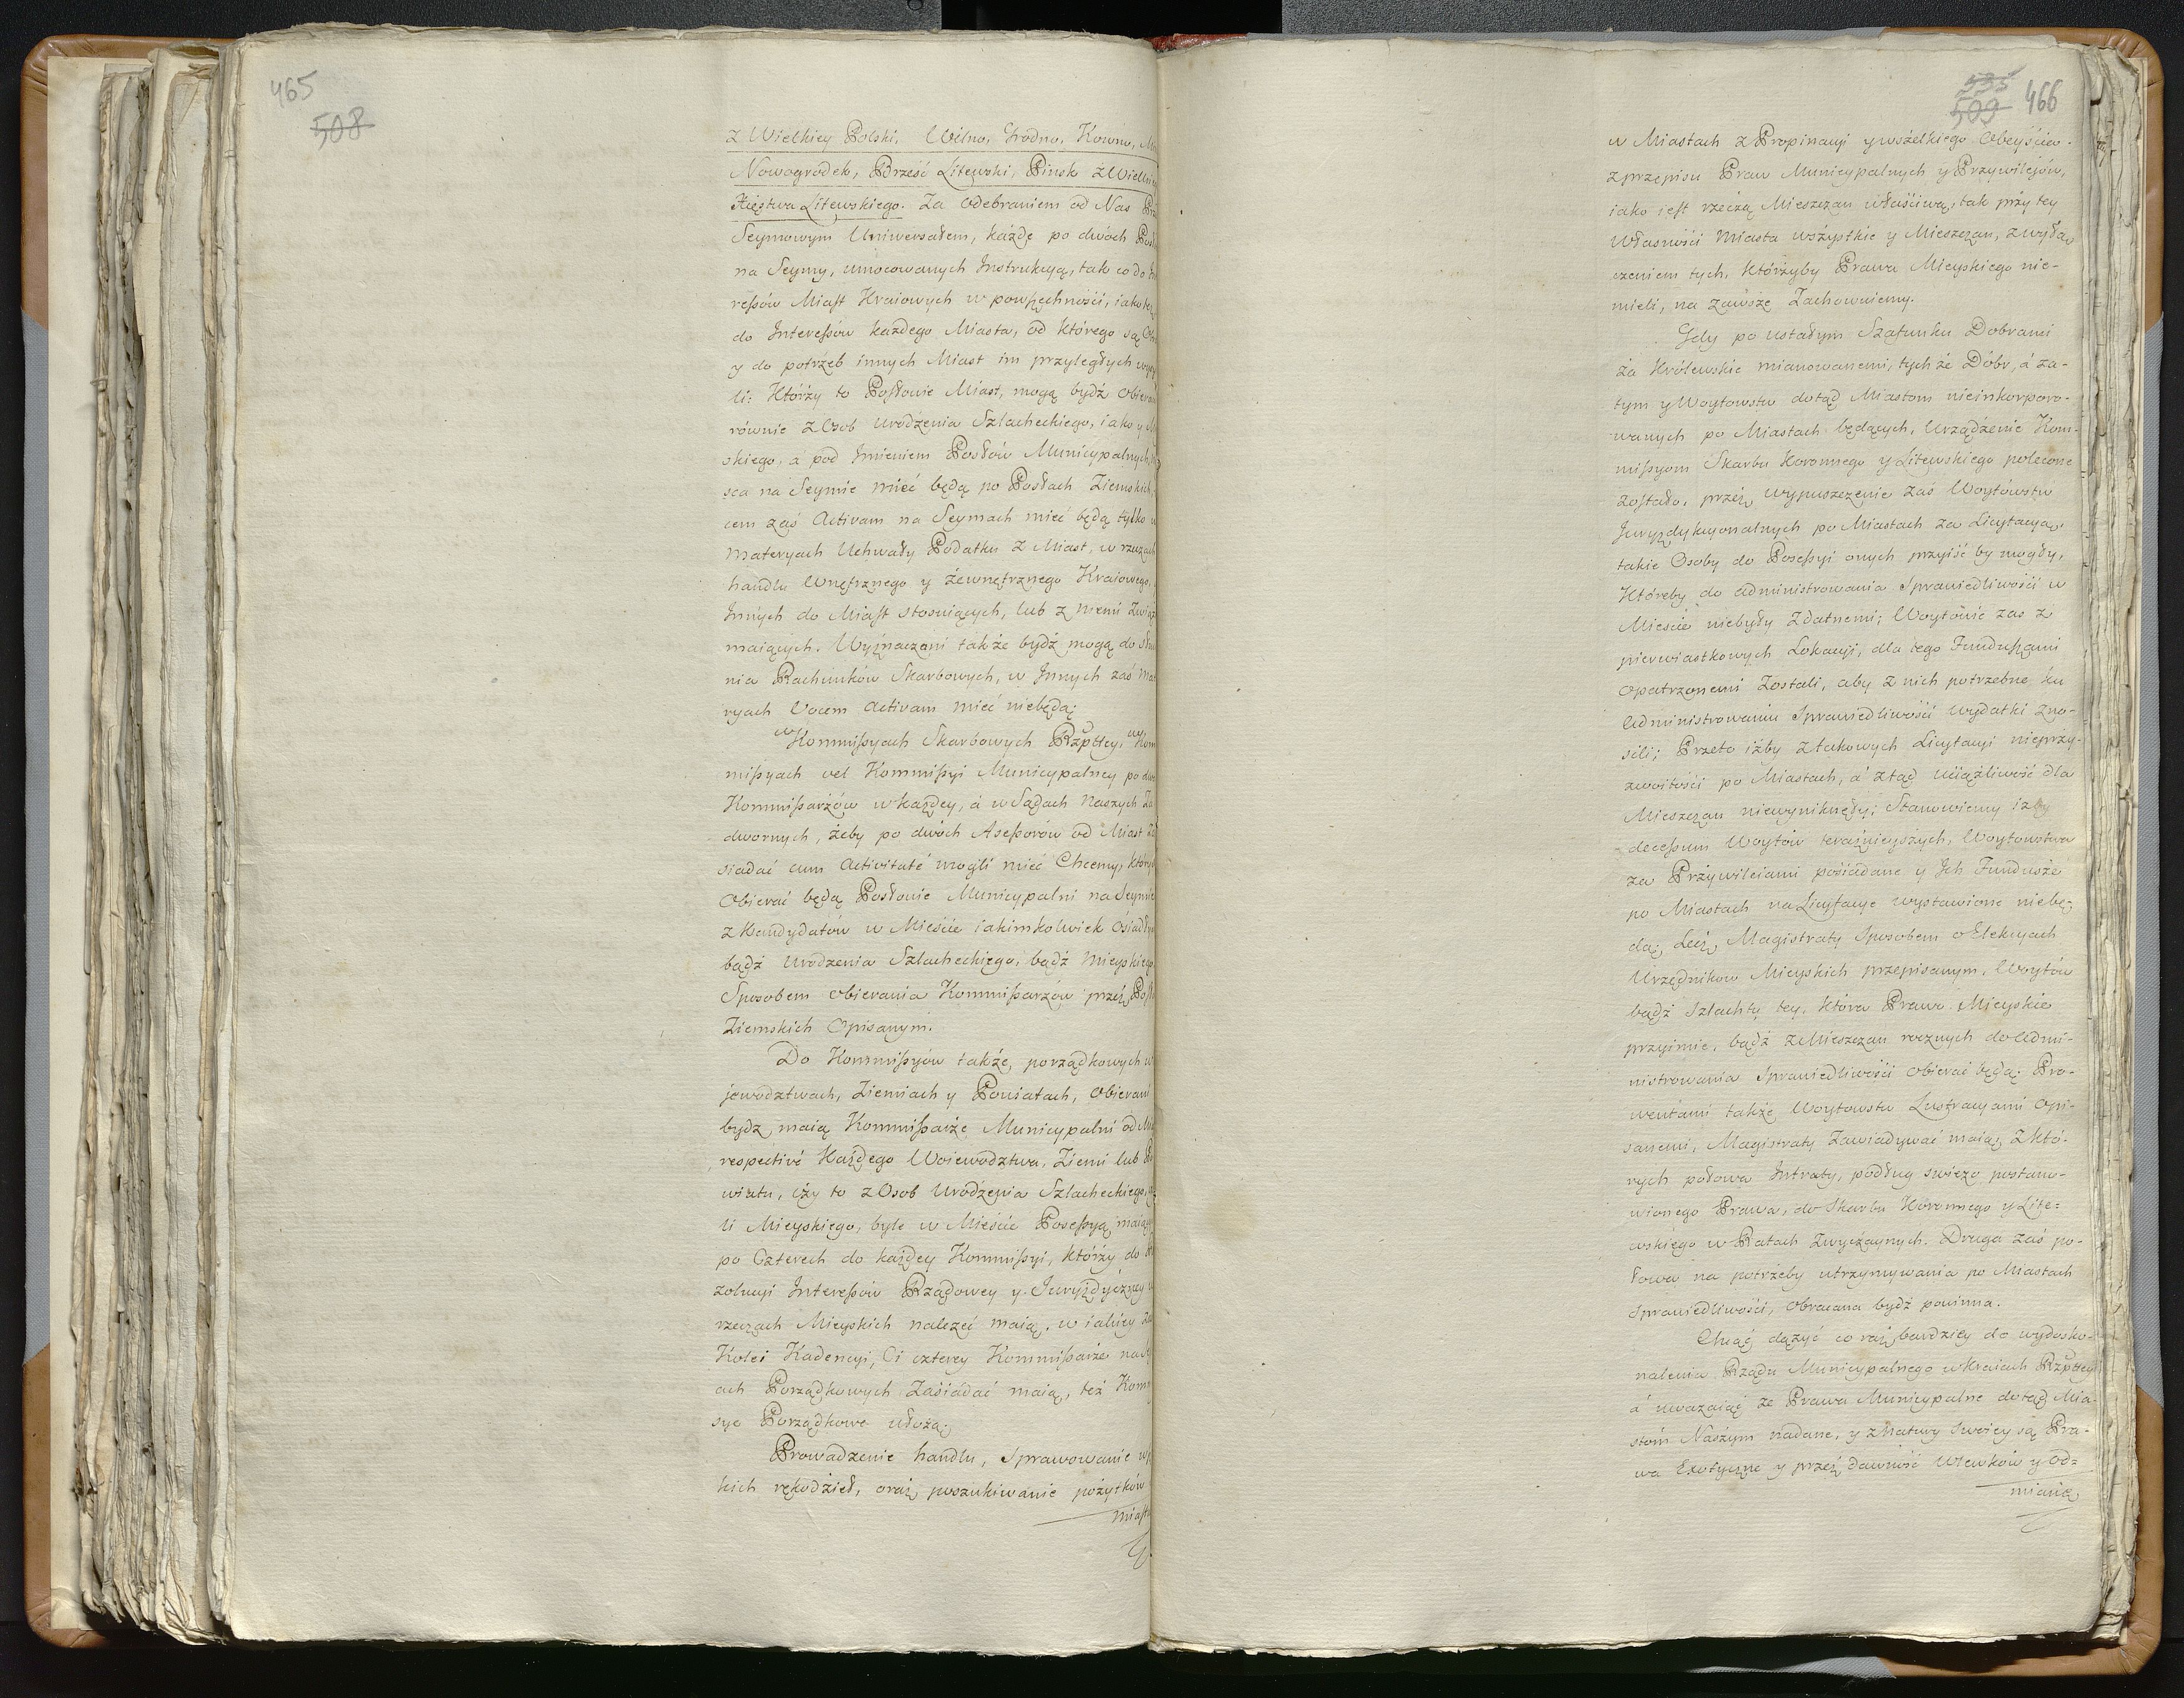 465
508
z Wielkiey Polski, Wilno, Grodno, Kowno,
Nowogrodek, Brześć Litewski, Pinsk z Wielki
Xięstwa Litewskiego. Za odebraniem od Nas
Seymowym Uniwersałem, każde po dwóch
na Seymy, umocowanych Instrukcyą, tak co do
ressów Miast Kraiowych w powszechności, iako też
do Interessów każdego Miasta, od którego są
y do potrzeb innych Miast im przyległych
li: Którży to Posłowie Miast, mogą bydź obieran
równie z Osob urodzenia Szlacheckiego, iako y
skiego, a pod Imieniem Posłów Municypalnych
sca na Seymie mieć będą po Posłach Ziemskich
cem zaś Activam na Seymach mieć będą tylko w
materyach Uchwały Podatku z Miast, w rzeczach
handlu Wnętrznego y zewnętrznego Kraiowego,
Innych do Miast stosuiących, lub z niemi Związ
maiących. Wyznaczeni także bydź mogą do
nia Rachunków Skarbowych, w Innych zaś Mat
ryach Vocem Activam mieć niebędą;
w Kommissyach Skarbowych Rzpttey, w Kom
missyach vel Kommissyi Municypalney po dw
Kommissarżów w każdey, a w Sądach Naszych Za
dwornych, żeby po dwóch Asessorów od Miast Za
siadać cum Activitate mogli mieć Chcemy, którzy
Obierać będą Posłowie Municypalni na Seymie
z Kandydatów w Mieście iakimkolwiek Osiadły
bądź urodzenia Szlacheckiego, bądź Mieyskiego
Sposobem obierania Kommissarzów przez Posł
Ziemskich Opisanym.
Do Kommissyów także, porządkowych w
jewodztwach, Ziemiach y Powiatach, obierani
bydź maią Kommissarże Municypalni od
respective Każdego Woiewodztwa, Ziemi lub Po
wiatu, czy to z Osob Urodzenia Szlacheckiego,
li Mieyskiego, byle w Mieście Possessyą maiąc
po Czterech do każdey Kommissyi, którży do
zolucyi Interessów Rządowey y Juryzdyczney w
rzeczach Mieyskich należeć maią, w iakiey
Kolei Kadencyi, Ci cztery Kommissarże na
ach Porządkowych Zasiadać maią, też Kom
sye Porządkowe ułożą;
Prowadzenie handlu, Sprawowanie
kich rękodzieł, oraz poszukiwanie pożytków
miast
535
509 466
w Miastach z Propinacyi y wszelkiego Obeyścia
z przepisu Praw Municypalnych y Przywilejów,
iako iest rzeczą Mieszczan właściwą, tak przy tey
Własności Miasta wszystkie y Mieszczan, z wyłą
czeniem tych, Którżyby Prawa Mieyskiego nie-
mieli, na zawsze Zachowuiemy.
Gdy po ustałym Szafunku Dobrami
za Królewskie mianowanemi, tych że Dóbr, á za-
tym y Woytowstw dotąd Miastom nieinkorporo-
wanych po Miastach będących, Urządzenie Kom-
missyom Skarbu Koronnego y Litewskiego polecone
zostało, przez wypuszczenie zaś Woytowstw
Juryzdykcyonalnych po Miastach za Licytacyą,
takie Osoby do Possesyi onych przyiść by mogły,
Któreby do administrowania Sprawiedliwości w
Mieście niebyły Zdatnemi; Woytowie zas z
pierwiastkowych Lokacyi, dla tego Funduszami
opatrzonemi zostali, aby z nich potrzebne ku
Administrowaniu Sprawiedliwości wydatki zno-
sili; Przeto iżby z takowych Licytacyi nieprzy-
zwoitości po Miastach, á ztąd uciążliwość dla
Mieszczan niewyniknęły; Stanowiemy iżby
decessum Woytów teraźnieyszych, Woytowstwa
za Przywileiami posiadane y Ich Fundusze
po Miastach na Licytacye wystawione niebę-
dą; Lecz Magistraty Sposobem o Elekcyach
Urzędnikow Mieyskich przepisanym, Woytów
bądź Szlachty tey, która Prawo Mieyskie
przyimie, bądź z Mieszczan rocznych do Admi-
nistrowania Sprawiedliwości obierać będą; Pro-
wentami także Woytowstw Lustracyami opi-
sanemi, Magistraty Zawiadywać maią; z któ-
rych połowa Intraty, podług swieżo postano-
wionego Prawa, do Skarbu Koronnego y Lite=
wskiego w Ratach Zwyczaynych. Druga zaś po-
łowa na potrzeby utrzymywania po Miastach
Sprawiedliwości, obracana bydź powinna.
Chcąc dążyć co raz bardziey do wydosko-
nalenia Rządu Municypalnego w Kraiach Rzpttey
á uważaiąc że Prawa Municypalne dotąd Mia-
stom Naszym nadane, y z Natury swoiey są Pra-
wa Exotyczne y przez dawność Wieków y od=
mianę